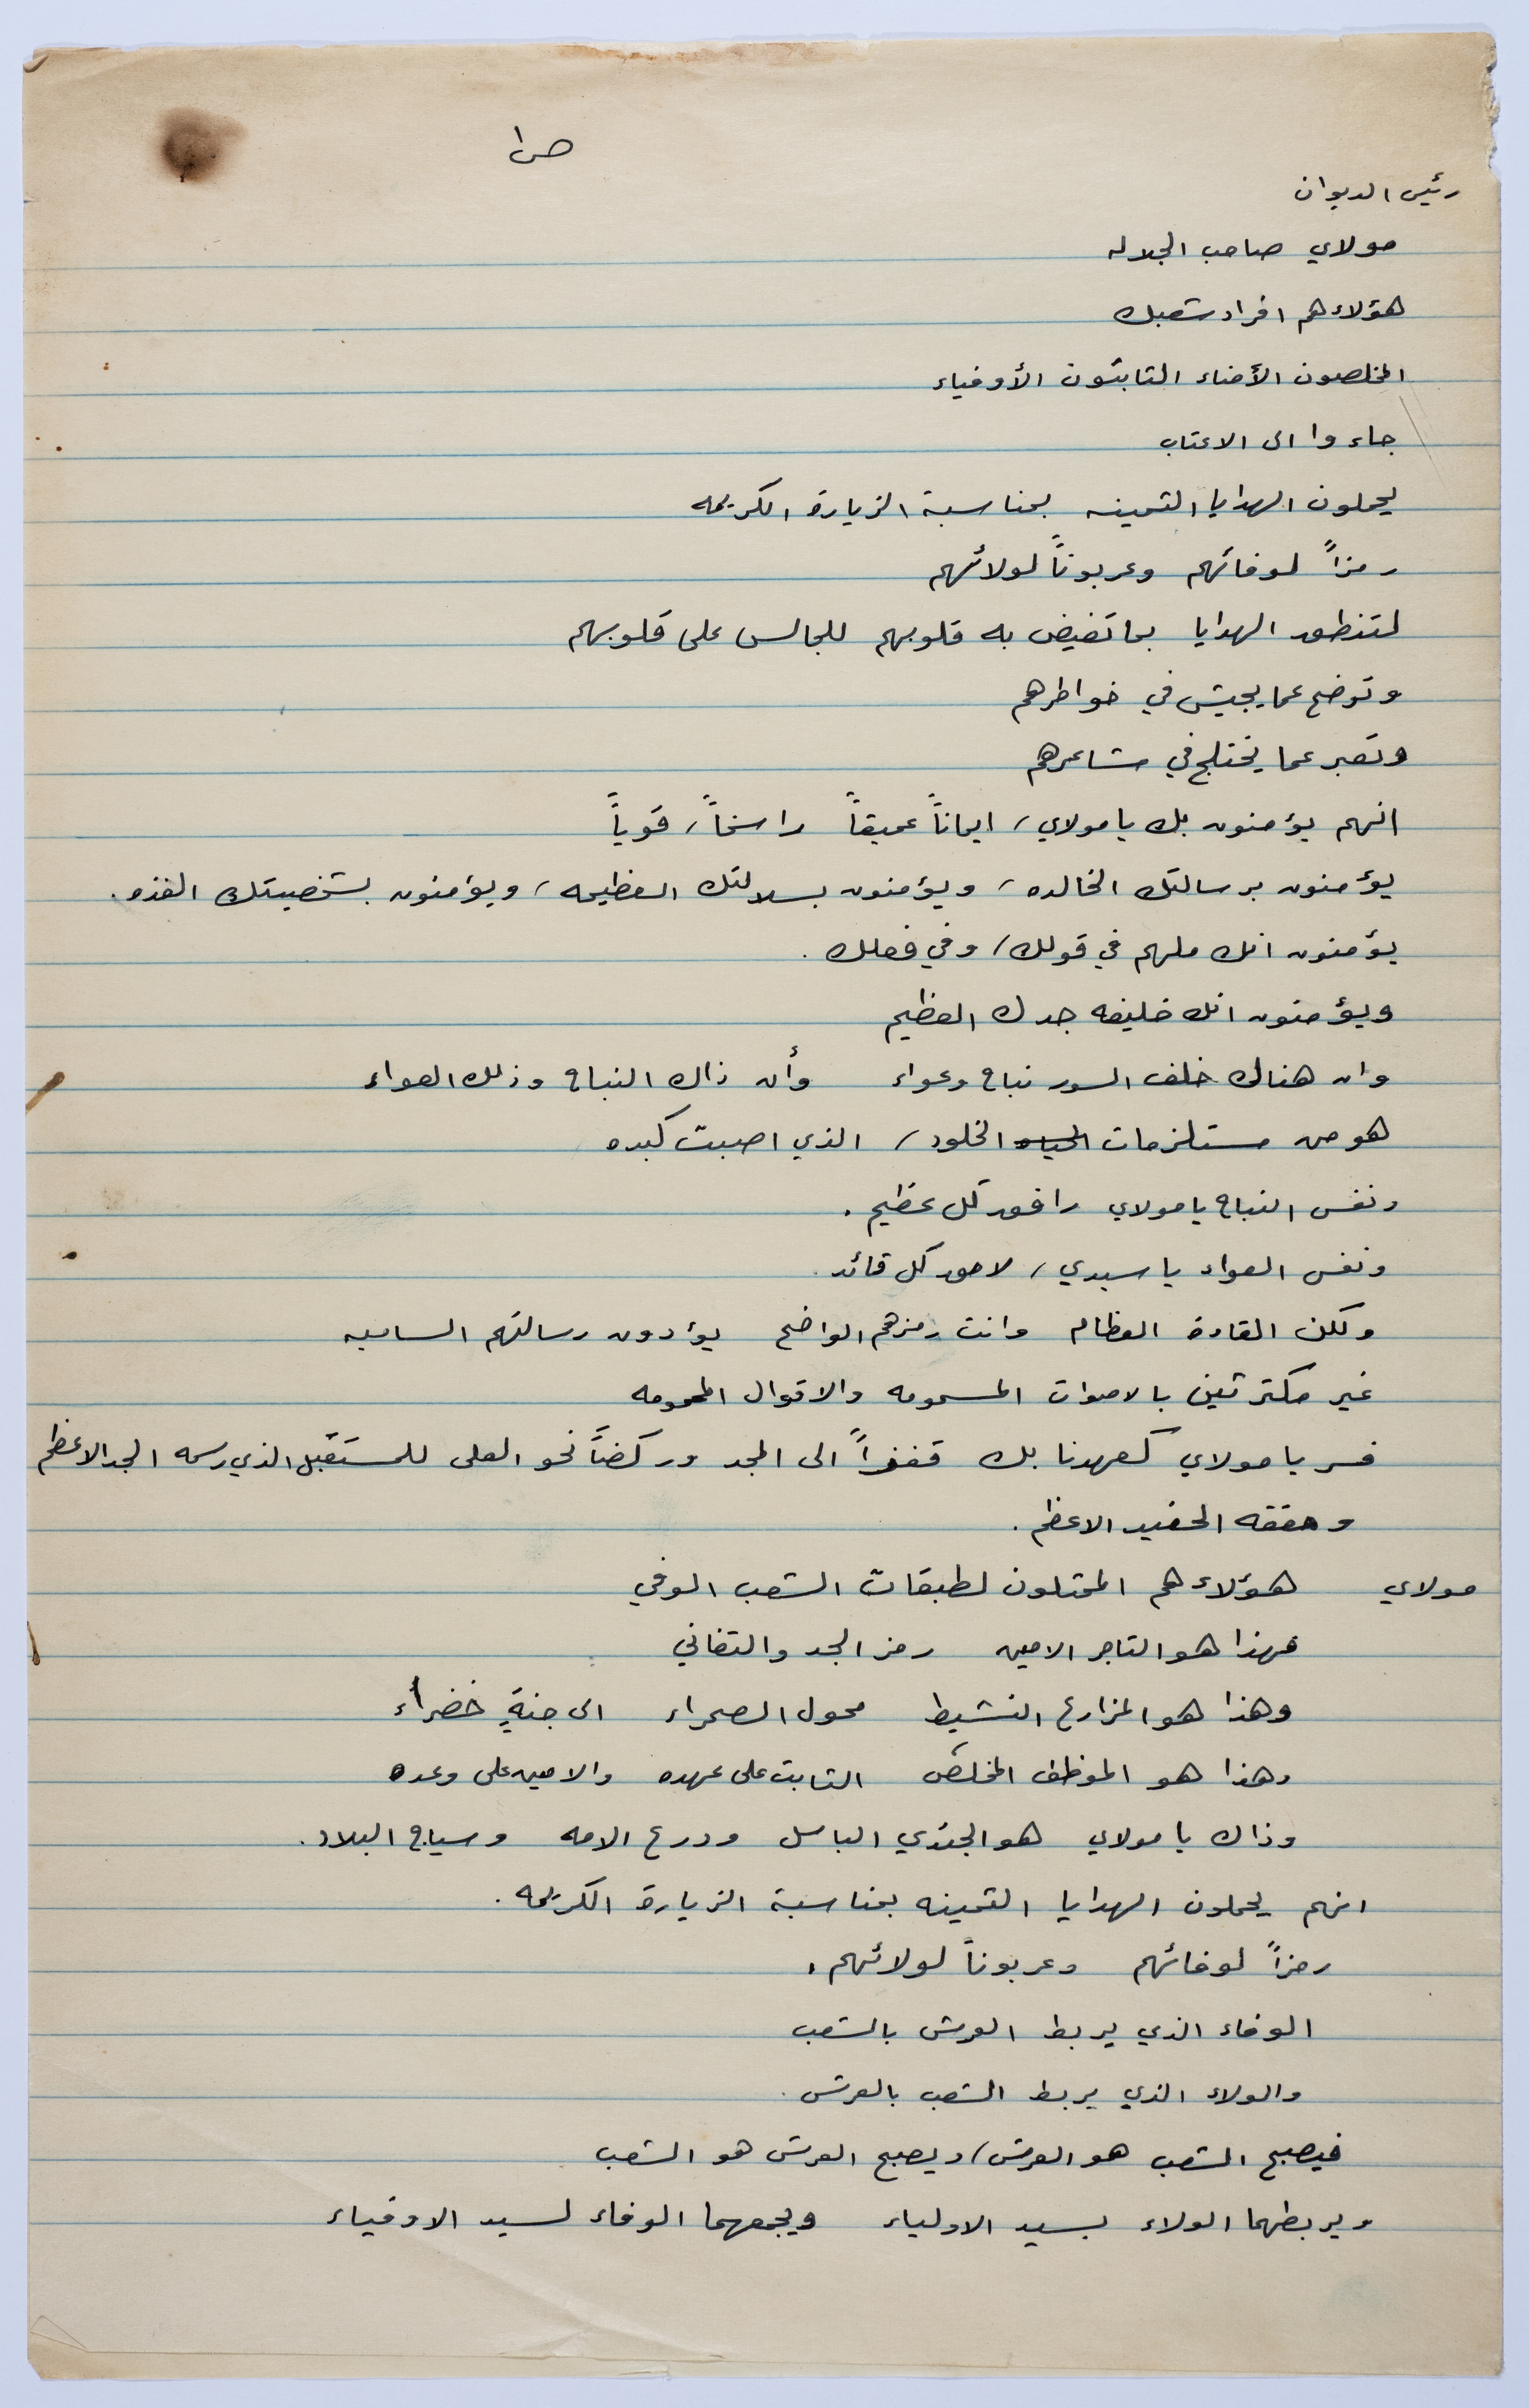 ص١
رئيس الديوان
مولاي صاحب الجلاله
هؤلاء هم افراد شعبك
المخلصون الأمناء الثابتون الأوفياء
جاءوا الى الاعتاب
يحملون الهدايا الثمينه بمناسبة الزيارة الكريمه
رمزاً لوفائهم وعربوناً لولائهم
لتنطق الهدايا بما تفيض به قلوبهم للجالس على قلوبهم
وتوضح عما يجيش في خواطرهم
وتعبر عما يختلج في مشاعرهم
انهم يؤمنون بك يا مولاي، ايماناً عميقاً راسخاً، قوياً
يؤمنون برسالتك الخالده، ويؤمنون بسلالتك العظيمه، ويؤمنون بشخصيتك الفذه.
يؤمنون انك ملهم في قولك، وفي فعلك.
ويؤمنون انك خليفه جدك العظيم
وان هناك خلف السور نباح وعواء وأن ذاك النباح وذلك العواء
هو من مستلزمات الحياه الخلود، الذي اصبت كبده
ونفس النباح يا مولاي رافق كل عظيم.
ونفس العواء يا سيدي، لاحق كل قائد.
ولكن القادة العظام وانت رمزهم الواضح يؤدون رسالتهم الساميه
غير مكترثين بالاصوات المسمومه والاقوال المحمومه
فسر يا مولاي كعهدنا بك قفزاً الى المجد وركضاً نحو العلى للمستقبل الذي رسمه الجد الاعظم
وحققه الحفيد الاعظم.
مولاي هؤلاء هم الممثلون لطبقات الشعب الوفي
فهذا هو التاجر الامين رمز الجد والتفاني
وهذا هو المزارع النشيط محول الصحراء الى جنةٍ خضراء
وهذا هو الموظف المخلص الثابت على عهده والامين على وعده
وذاك يا مولاي هو الجندي الباسل ودرع الامه وسياج البلاد.
انهم يحملون الهدايا الثمينه بمناسبة الزيارة الكريمه.
رمزاً لوفائهم وعربوناً لولائهم.
الوفاء الذي يربط العرش بالشعب
والولاء الذي يربط الشعب بالعرش.
فيصبح الشعب هو العرش، ويصبح العرش هو الشعب
ويربطهما الولاء بسيد الاولياء ويجمعهما الوفاء لسيد الاوفياء